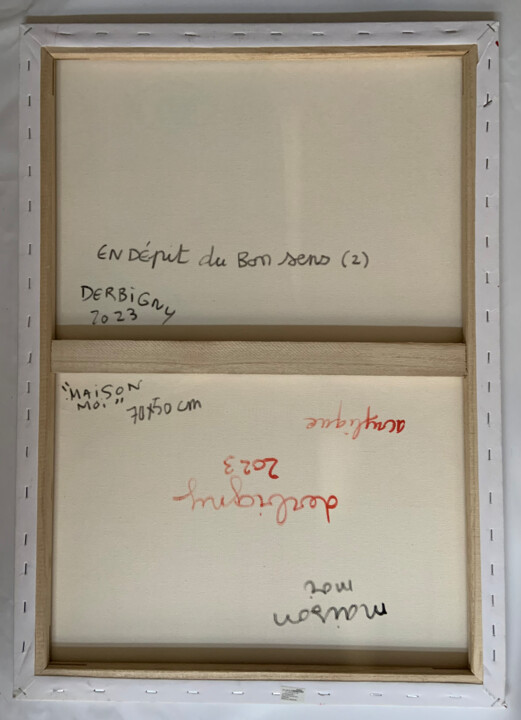 EN DÉpit du Bon sens (2)
DERBiGNy
2023
"MAiSON
MOi"
70x50 cm
acrylique
2023
derbigny
moi
maison